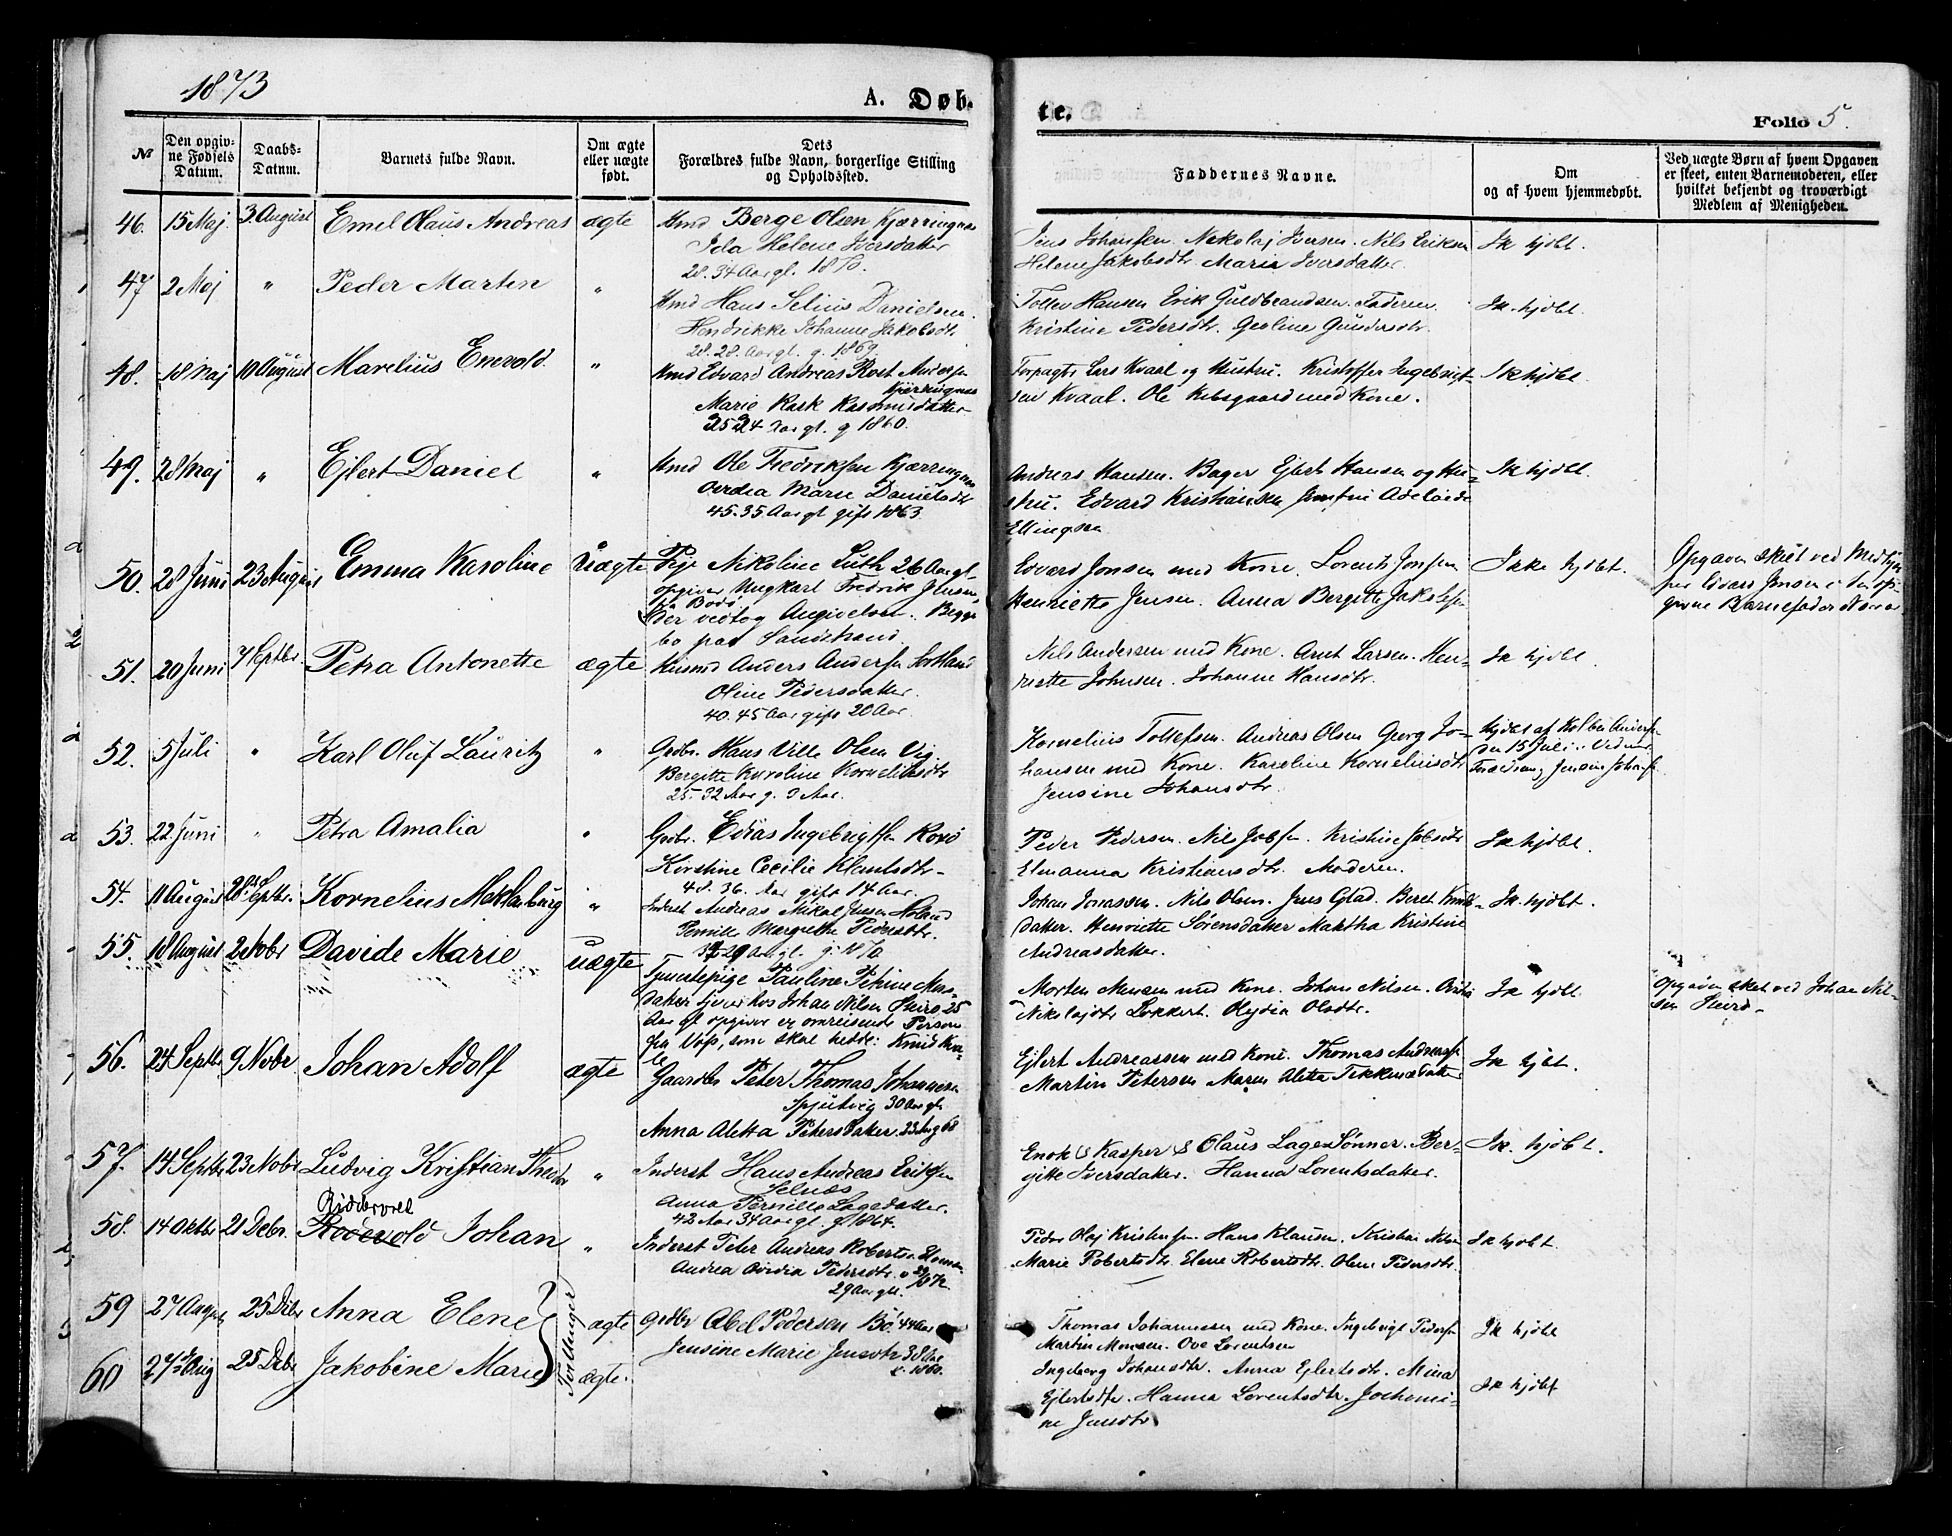 1873
A. Døb-
te.
Folio 5.
№
Den opgiv-
ne Fødsels
Datum.
Daabs-
Datum.
Barnets fulde Navn.
Om ægte
eller uægte
født.
Dets
Forældres fulde Navn, borgerlige Stilling
og Opholdssted.
Faddernes Navne.
Om
og af hvem hjemmedøbt.
Ved uægte Børn af hvem Opgaven
er skeet, enten Barnemoderen, eller
hvilket bekjendt og troværdigt
Medlem af Menigheden.
46. 15 Maj 3 August Emel Olaus Andreas ægte
Berge Olsen Kjærringnæs
Ida Helene Iversdatter
28. 34 Aar gl. 1870.
Jens Johansen. Nekolaj Iversen. Nils Eriksen
Helene Jakobsdtr Maria Iversdatter.
Ik hjdbt.
47 2 Maj " Peder Martin "
Hans Selius Danielsen.
Hendrikke Johanne Jakobsdtr
28. 28. Aar gl. g. 1869
Tollev Hansen Erik Guldbrandsen. Faderen.
Kristine Pedersdtr. Geoline Gundersdtr.
Ik. hjdbt.
48. 18 Maj 10 August Marelius Enevold "
Edvard Andreas Rost Anderse
Kjærringnæs
Marie Rask Rasmusdatter
25 24 Aar gl. g 1860.
Forpagtr Lars Kvaal og Hustru. Kristoffer Ingebrigt-
sen Kvaal. Ole Kibsgaard med Kone.
Ik hjdbt
49. 28 Maj " Ejlert Daniel "
Ole Fredriksen Kjærringnæs
Ovedia Marie Danielsdtr
45. 35 Aar gl gift 1863.
Andreas Hansen. Bager Ejlert Hansen og Hu-
stru. Edvard Kristiansen, Adelaide
Ellingsen
Ik hjdbt.
50. 28 Juni 23 August Emma Karoline Uægte
Pige Nikoline Luth 26 Aar gl.
opgiver Ungkarl Fredrik Jensen
fra Bodø
Der vedtog Angivelsen. Begge
bo paa Sandstrand
Edvard Jonsen med Kone. Lorents Jonsen
Henriette Jensen. Anna Bergitte Jakobsen
Ikke hjdbt.
Opgaven skeet ved Medhjæl-
per Edvard Jensen
givne Barnefader
51. 20 Juni 7 Septbr. Petra Antonette ægte
Husmd Anders Andersen Sortland
Oline Pedersdatter.
40. 45 Aar gift 20 Aar.
Nils Andersen med Kone. Arnt Larsen. Hen-
riette Johnsen. Johanne Hansdtr.
Ik hjdbt.
52. 5 Juli " Karl Oluf Lauritz "
Grdbr. Hans Ville Olsen Vig
Bergitte Karoline Kornelisdtr
25. 32 Aar g. 3 Aar.
Kornelius Tollefsen. Andreas Olsen Georg Jo-
hansen med Kone. Karoline Korneliusdtr
Jensine Johansdtr.
hjdbt af Andersen
Den 15 Juli. Vidner
Forældrene, Jensine Johansdtr
53. 22 Juni " Petra Amalia "
Grdbr. Edias Ingebrigtsen Roksø
Kirstine Cecilie Klausdtr-
48. 36. Aar gift 14 Aar.
Peder Pedersen. Nils Jobsen. Kristine Jobsdtr
Elenanna Kristiansdtr. Moderen.
Ik hjdbt.
54. 11 August 28de Septbr. Kornelius Meklenburg "
Inderst Andreas Nikol Jensen Holand
Pernille Margrethe Pedersdtr.
37 29 Aar gl. g. 1870
Johan Jonassen. Nils Olsen. Jens Glad. Beret Knuds-
datter. Henriette Sørensdatter Maktha Kristine
Andreasdatter.
Ik. hjdbt.
55. 18 August 2 Nobr Davide Marie uægte
Tjenestepige Pauline Petrine Mos-
datter tjener hos Johan Nilsen Steiro 25
Aar gl opgiver en omreisende Person
fra Vos, som skal hedde: Knud Kva-
le
Morten Monsen med Kone. Johan Nilsen. Ovidia
Nikolajdtr Lokkert. Olydia Olsdtr.
Ik hjdbt.
Opgaven skeet ved Johan Nil-
sen Steiro-
56. 24 Septbr 9 Nobr Johan Adolf ægte
Gaardbr Peter Thomas Johannesen
Spjutvig 30 Aar gl.
Anna Aletta Petersdatter. 23 Aar g 68
Ejlert Andreassen med Kone. Thomas Andreassen
Martin Petersen Maren Aletta Tekkensdatter
Ik hjbt.
57. 14 Septbr 23 Nobr Ludvig Kristian Theodor "
Inderst Hans Andreas Eriksen
Selnæs
Anna Pernille Lagesdatter.
42 Aar 34 Aar gl. g. 1864.
Enok & Kasper & Olaus Lages Sønner. Ber-
gitte Iversdatter. Hanna Lorentsdatter.
Ik. hjdbt.
58. 14 Oktbr 21 Debr. Rødevold Johan "
Inderst Peter Andreas Robertsen
Andrea Ovidia Pedersdtr.
29 Aar gl.
Peder Olaj Kristensen Hans Klausen. Kristian Nilsen
Marie Robertsdtr. Elene Robertsdtr. Oline Pedersdtr.
Ik hjdbt.
59 27 August 25 Debr Anna Elene ægte
Tvillinger
Grdbr Abel Pedersen Bø. 44 Aar
Jensine Marie Jensdtr 38 Aar
g. 1860.
Thomas Johannesen med Kone. Ingebrigt Pedersen
Martin Monsen. Ove Lorentsen
Ik hjdbt
60 27 Aug 25 Debr Jakobine Marie ægte.
Ingeborg Johansdtr. Anna Ejlertsdtr. Mina
Ejlertsdtr. Hanna Lorentsdtr. Jochemi-
ne Jensdtr
Ik hjdbt